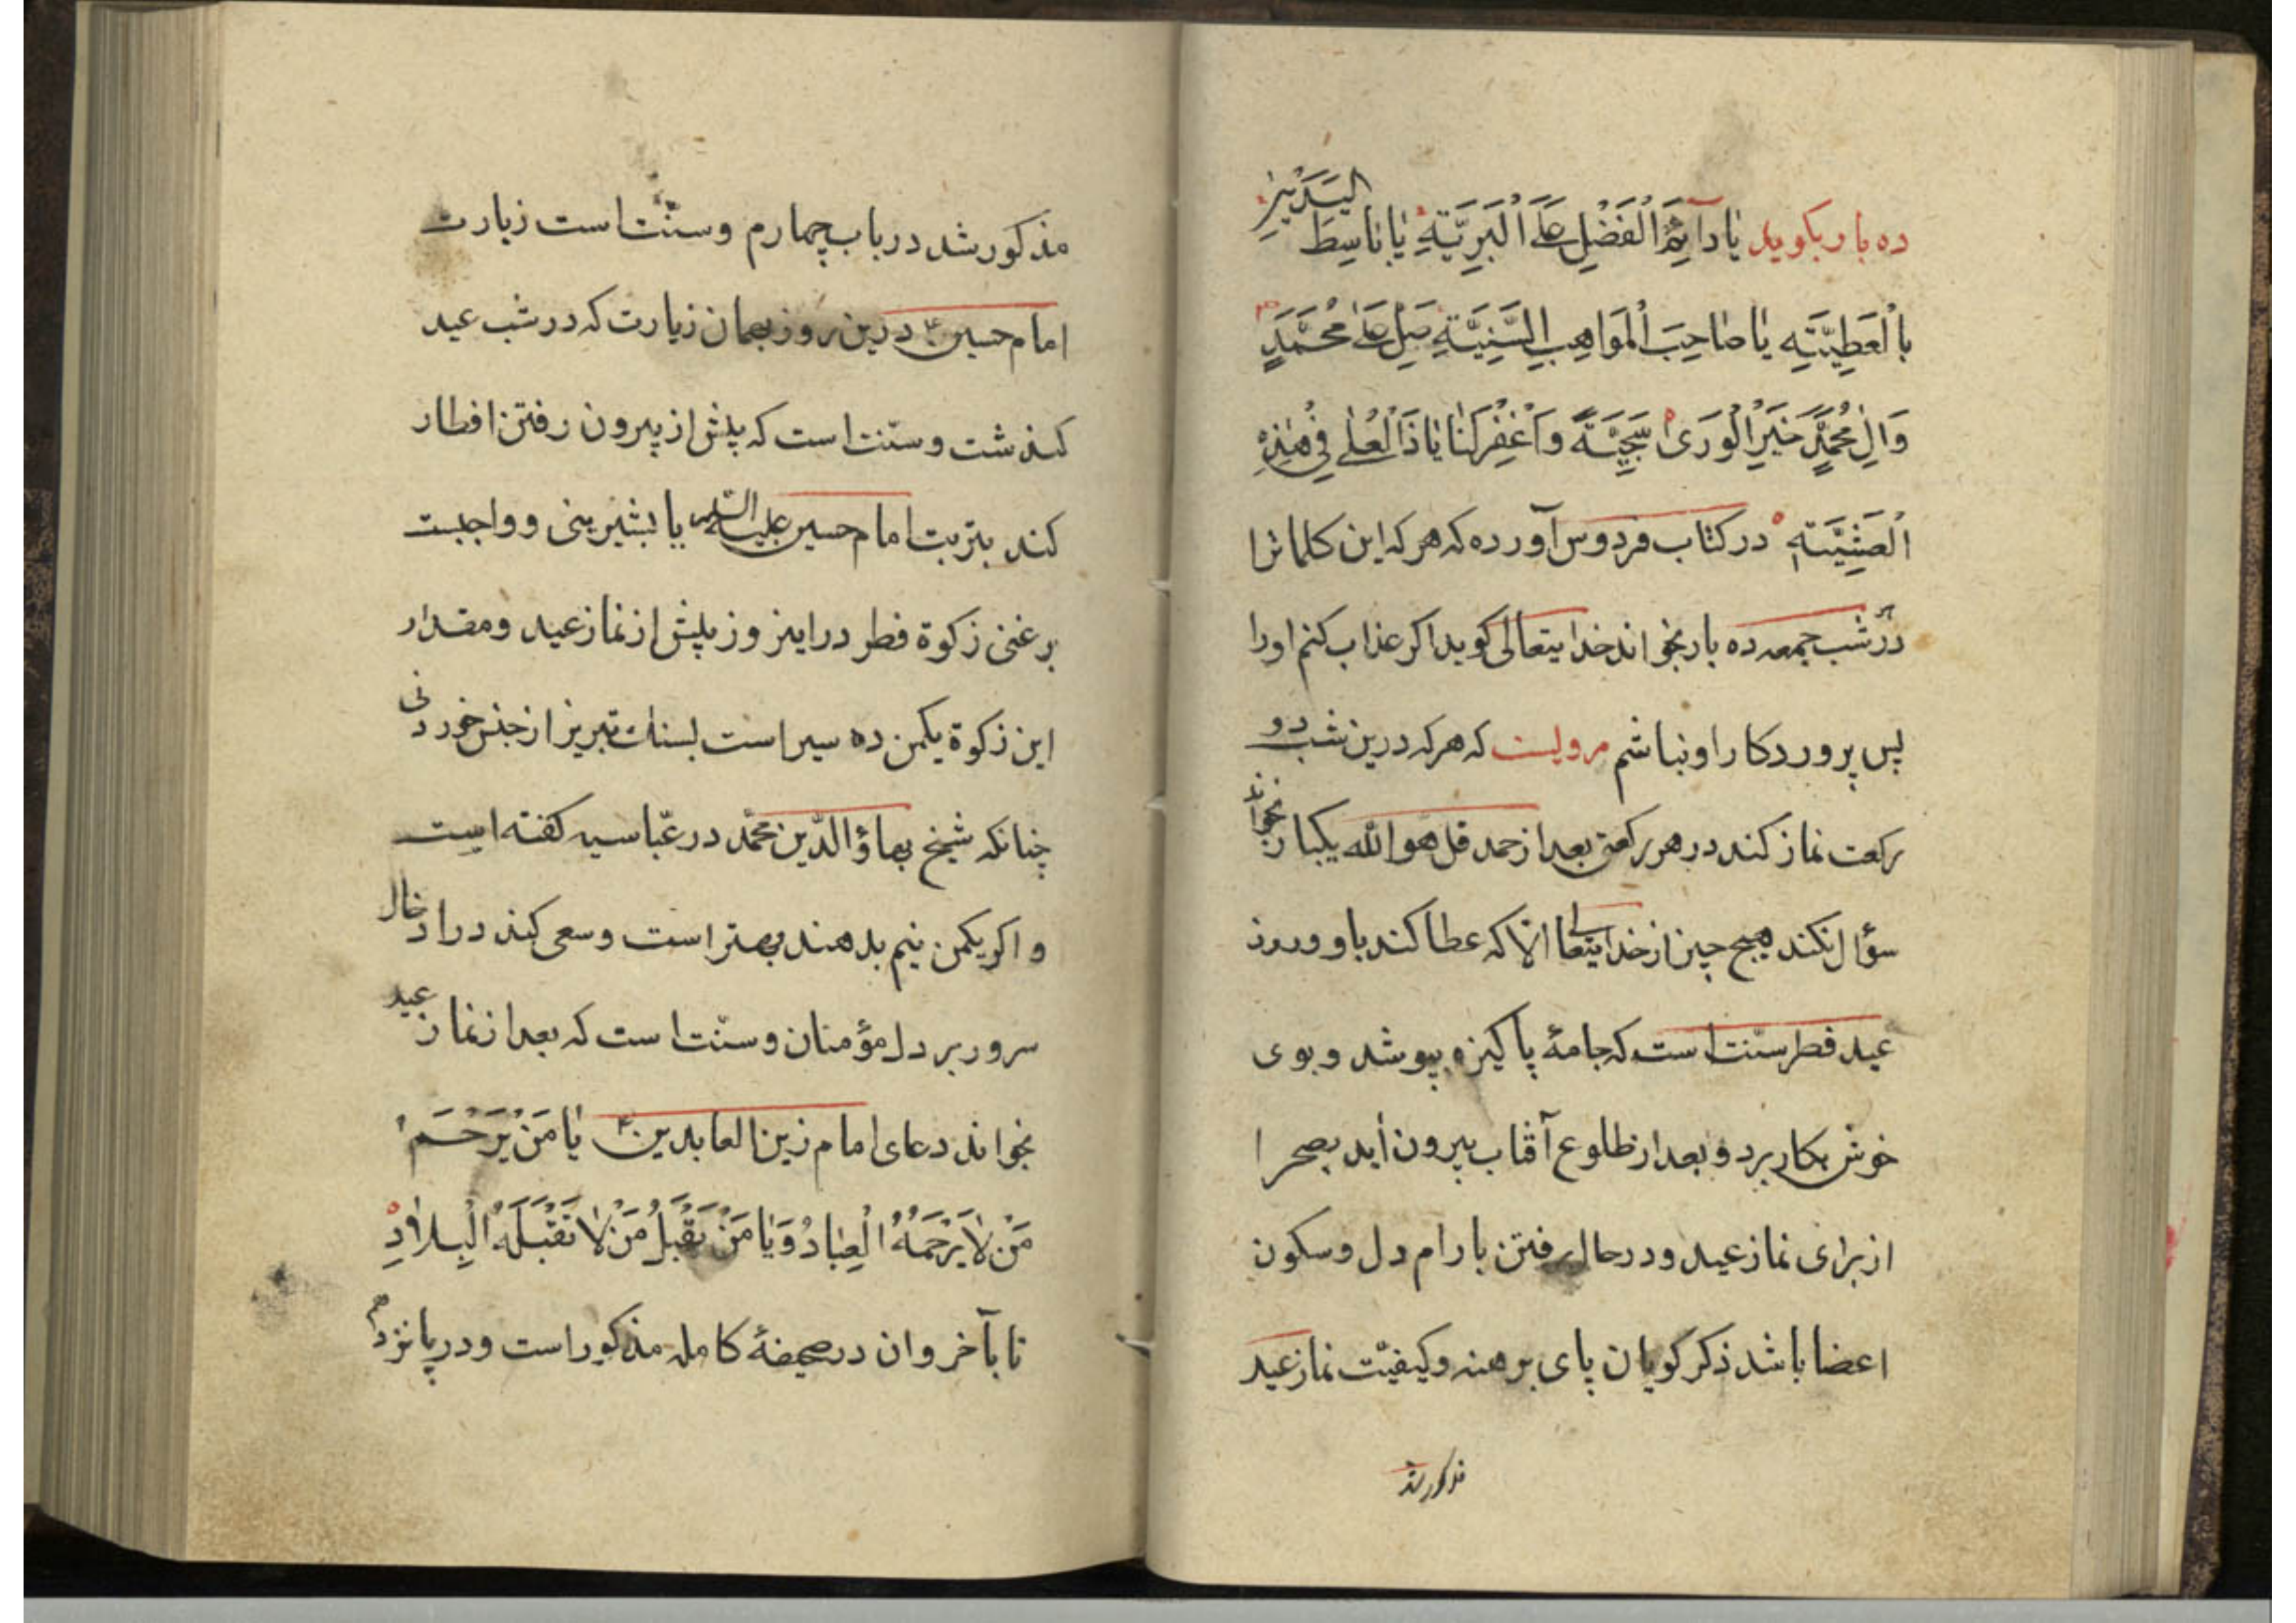 ده بار بکوید یٰا دٰآئِمَ الْفَضْلِ عَلَی الْبَرِیَّةِ یٰا بٰاسِطَ الیَدَیْنِ
بِالْعَطِیَّةِ یٰا صٰاحِبَ الْمَوٰاهِبِ السَّنِیَّةِ صَلِّ عَلیٰ مُحَمَّدٍ
وَاٰلِ مُحَمَّدٍ خَیْرِ الْوَریٰ سَجِیَّةً وَاغْفِرْلَنٰا یٰا ذَالْعُلیٰ فِی هٰذِهِ
الْعَشِیَّةِ در کتاب فردوس آورده که هر که این کلماترا
در شب جمعه ده بار بخواند خدایتعالی کوید اکر عذاب کنم اورا
پس پروردکار او نباشم مرویست که هر که درین شب دو
رکعت نماز کند در هر رکعتی بعد از حمد قل هو الله یکبار بخواند
سؤال نکند هیچ چیز از خدایتعالی الا که عطا کند باو و روز
عید فطر سنّت است که جامهٔ پاکیزه بپوشد و بوی
خوش بکار برد و بعد از طلوع آفتاب بیرون اید بصحرا
از برای نماز عید و در حال رفتن بارام دل و سکون
اعضا باشد ذکر کویان پای برهنه و کیفیّت نماز عید
مذکور شد
مذکور شد در باب چهارم و سنّت است زیارت
امام حسین ع درین روز بهمان زیارت که در شب عید
کذشت و سنّت است که پیش از بیرون رفتن افطار
کند بتربت امام حسین علیه السّلام یا بشیرینی و واجبست
بر غنی زکوة فطر در اینروز پیش از نماز عید و مقدار
این زکوة یکمن ده سیر است بسنك تبریز از جنس خوردنی
چنانکه شیخ بهاؤ الدّین محمّد در عبّاسیه کفته است
و اکر یکمن نیم بدهند بهتر است و سعی کند در ادخال
سرور بر دل مؤمنان و سنّت است که بعد از نماز عید
بخواند دعای امام زین العابدین ع یٰا مَنْ یَرْحَمُ
مَنْ لاٰ یَرْحَمُهُ الْعِبٰادُ وَ یٰا مَنْ یَقْبَلُ مَنْ لاٰ تَقْبَلُهُ الْبِلاٰدِ
تا بآخر و ان در صحیفهٔ کامله مذکور است و در پانزدهم